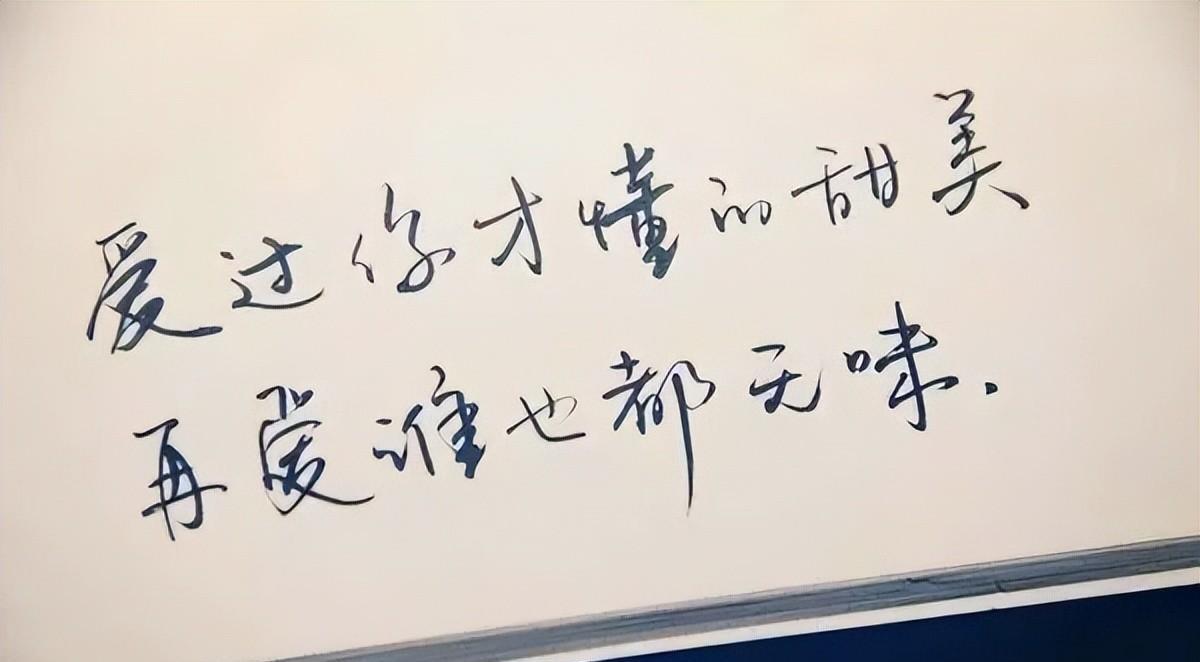 爱过你才懂的甜美
再爱谁也都无味.